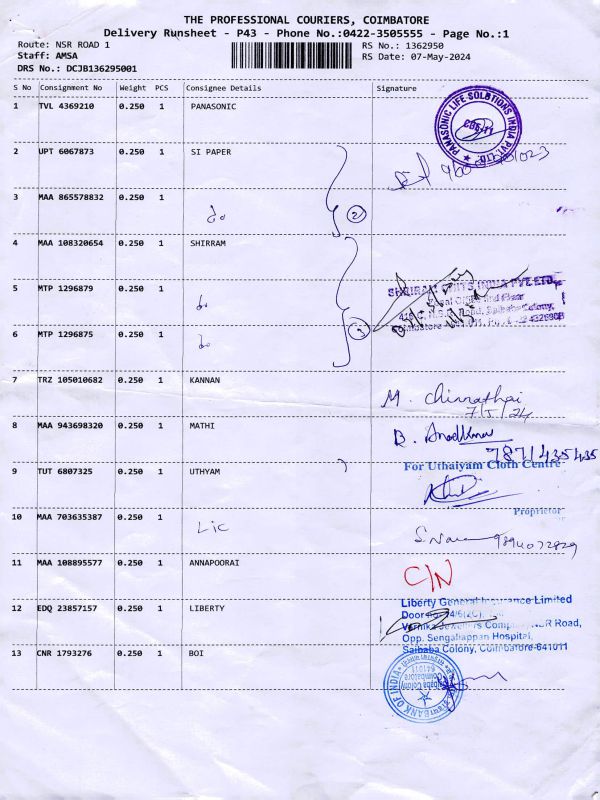 THE PROFESSIONAL COURIERS, COIMBATORE
Delivery Runsheet - P43 - Phone No.:0422-3505555 - Page No.:1
Route: NSR ROAD 1
RS No.: 1362950
Staff: AMSA
RS Date: 07-May-2024
DRS No.: DCJB136295001
S No Consignment No Weight PCS Consignee Details Signature
1 TVL 4369210 0.250 1 PANASONIC
PANASONIC LIFE SOLUTIONS INDIA PVT. LTD.
2 UPT 6067873 0.250 1 SI PAPER
3 MAA 865578832 0.250 1 do
2
4 MAA 108320654 0.250 1 SHIRRAM
5 MTP 1296879 0.250 1 do
SHRIRAM CHITS INDIA PVT LTD.
6 MTP 1296875 0.250 1 do
7 TRZ 105010682 0.250 1 KANNAN
M. Chinnathai
7/5/24
8 MAA 943698320 0.250 1 MATHI
7871435435
9 TUT 6807325 0.250 1 UTHYAM
For Uthaiyam Cloth Centre
Proprietor
10 MAA 703635387 0.250 1 Lic
9894072829
11 MAA 108895577 0.250 1 ANNAPOORAI
C/N
12 EDQ 23857157 0.250 1 LIBERTY
Liberty General Insurance Limited
NSR Road,
Opp. Sengaliappan Hospital,
Saibaba Colony, Coimbatore-641011
13 CNR 1793276 0.250 1 BOI
BANK OF INDIA
Saibaba Colony
Coimbatore
641011